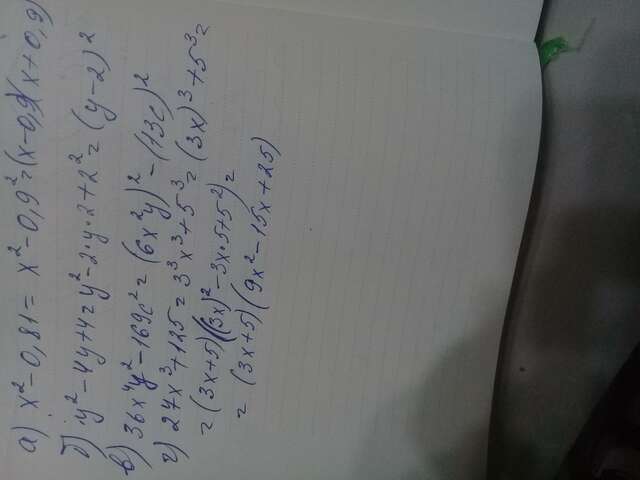 а) x²-0,81= x²-0,9²=(x-0,9)(x+0,9)
б) y²-4y+4=y²-2·y·2+2²=(y-2)²
в) 36x⁴y²-169c²=(6x²y)²-(13c)²
г) 27x³+125=3³x³+5³=(3x)³+5³=
=(3x+5)((3x)²-3x·5+5²)=
=(3x+5)(9x²-15x+25)